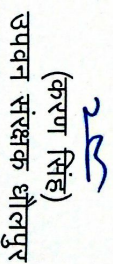 (करण सिंह)
उपवन संरक्षक धौलपुर